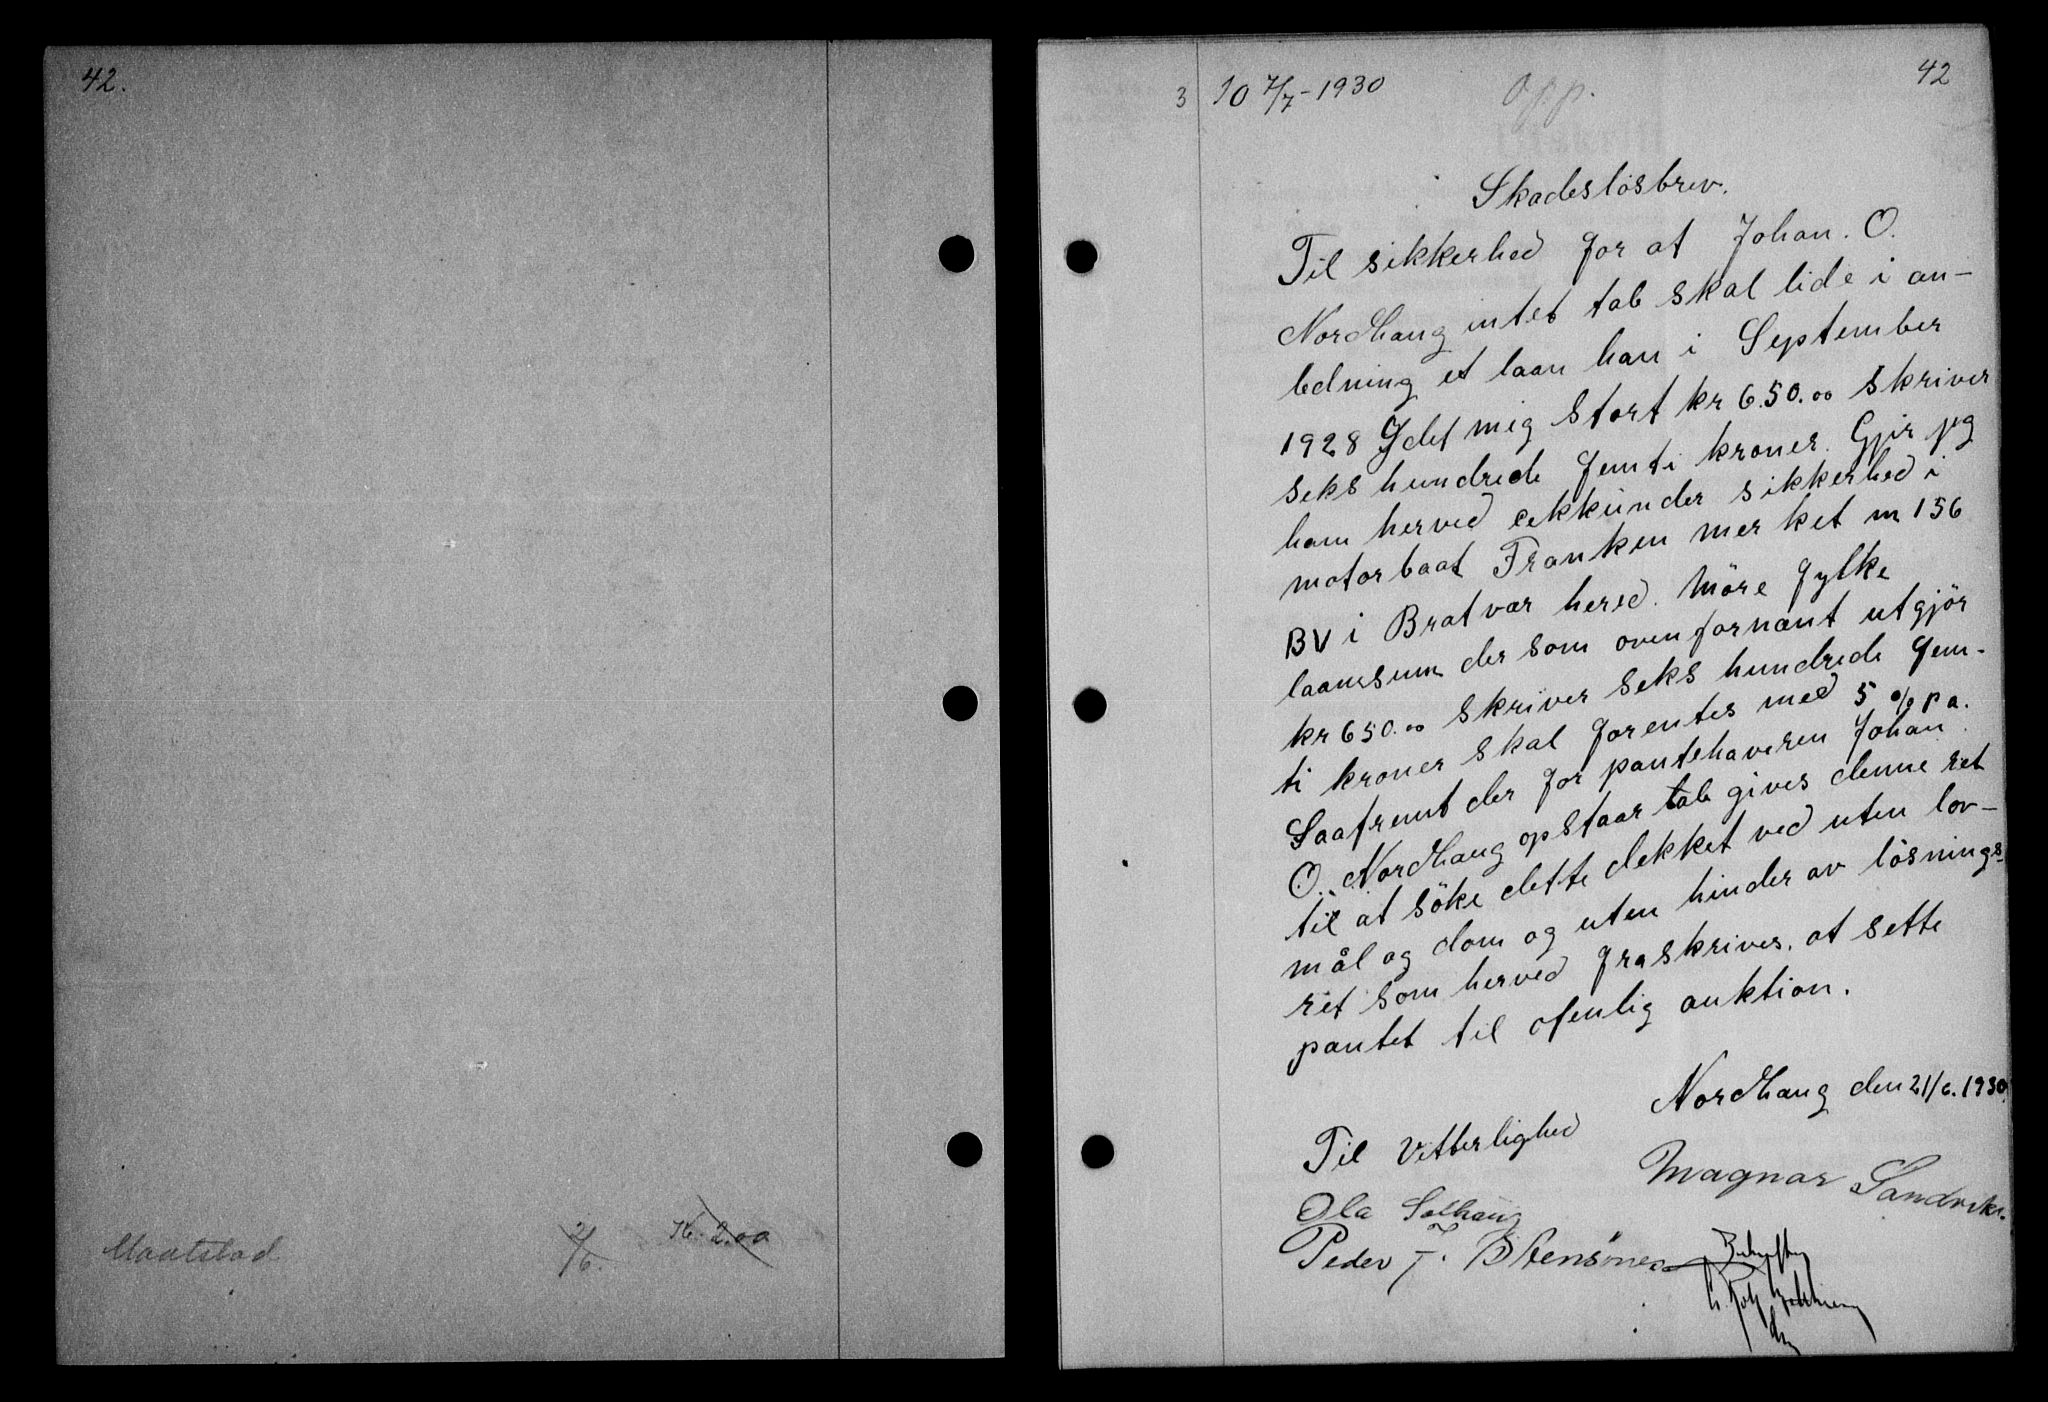 42.
Maatstad
2/6.
K. 2.00
3 10 7/7-1930
opp.
42
Skadeslösbrev.
Til sikkerhed for at Johan. O.
Nordhaug intet tab skal lide i an-
ledning et laan han i September
1928 Ydet mig stort kr 6.50.00 skriver
seks hundrede femti kroner. Gjir jeg
ham herved sikkerhed i
motorbaat Franken merket m 156
BV i Bratvær hered. Möre fylke
laanesum der som ovenfornævnt utgjör
kr 650.00 skriver seks hundrede fem-
ti kroner skal forentes med 5 % p a.
Saafremt der for pantehaveren Johan
O. Nordhaug opstaar tab gives denne ret
til at söke dette dekket ved uten lov-
mål og dom og uten hinder av lösnings-
ret som herved fraskrives. at sette
pantet til ofenlig auktion.
Nordhaug den 21/6. 1930.
Til Vitterlighed
Magnar Sandvik.
Ola Solhaug
Peder J. Stensönes